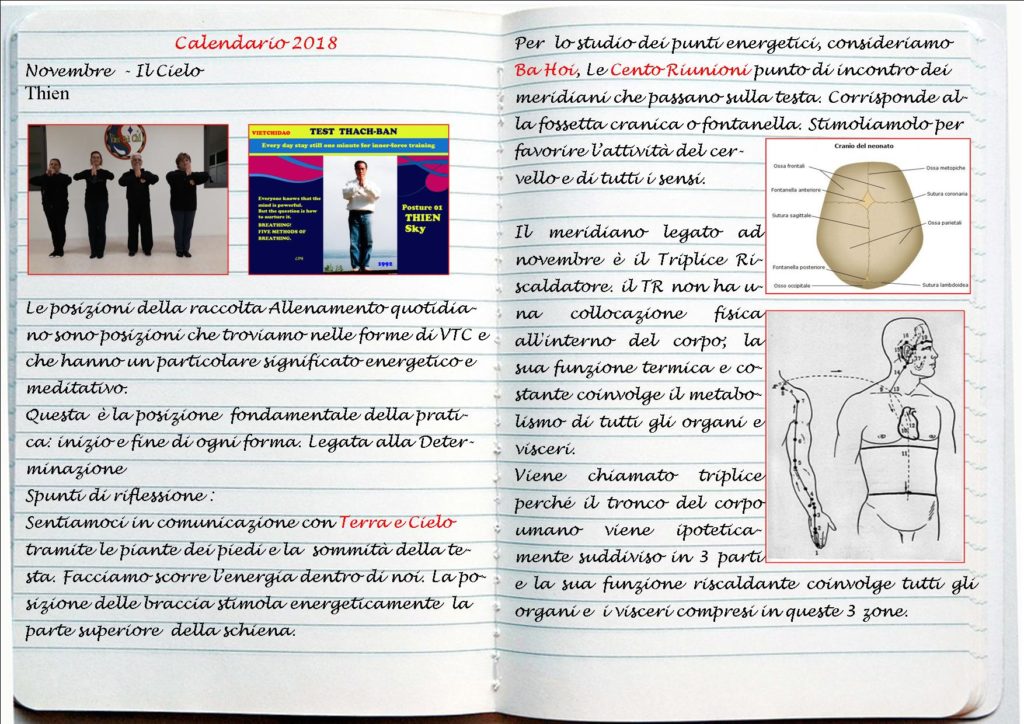 Calendario 2018
Novembre - Il Cielo
Thien
VIETCHIDAO
TEST THACH-BAN
Every day stay still one minute for inner-force training
Everyone knows that the
mind is powerful.
But the question is how
to nurture it.
BREATHING!
FIVE METHODS OF
BREATHING.
Posture 01
THIEN
Sky
1992
Le posizioni della raccolta Allenamento quotidia-
no sono posizioni che troviamo nelle forme di VTC e
che hanno un particolare significato energetico e
meditativo.
Questa è la posizione fondamentale della prati-
ca: inizio e fine di ogni forma. Legata alla Deter-
minazione
Spunti di riflessione :
Sentiamoci in comunicazione con Terra e Cielo
tramite le piante dei piedi e la sommità della te-
sta. Facciamo scorre l'energia dentro di noi. La po-
sizione delle braccia stimola energeticamente la
parte superiore della schiena.
Per lo studio dei punti energetici, consideriamo
Ba Hoi, Le Cento Riunioni punto di incontro dei
meridiani che passano sulla testa. Corrisponde al-
la fossetta cranica o fontanella. Stimoliamolo per
favorire l'attività del cer-
vello e di tutti i sensi.
Cranio del neonato
Ossa frontali
Ossa metopiche
Fontanella anteriore
Sutura coronaria
Sutura sagittale
Ossa parietali
Fontanella posteriore
Osso occipitale
Sutura lambdoidea
Il meridiano legato ad
novembre è il Triplice Ri-
scaldatore. il TR non ha u-
na collocazione fisica
all'interno del corpo; la
sua funzione termica e co-
stante coinvolge il metabo-
lismo di tutti gli organi e
visceri.
Viene chiamato triplice
perché il tronco del corpo
umano viene ipotetica-
mente suddiviso in 3 parti
e la sua funzione riscaldante coinvolge tutti gli
organi e i visceri compresi in queste 3 zone.